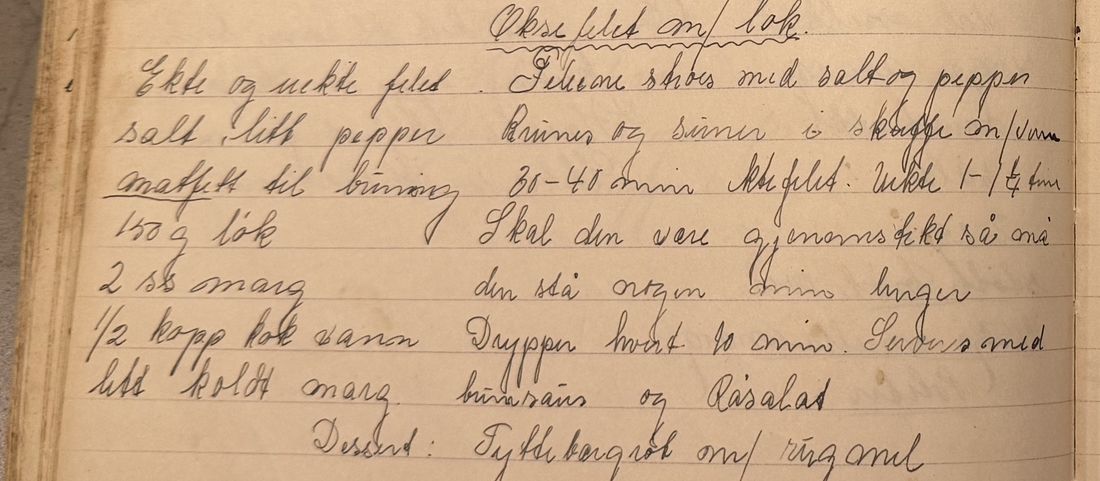 Oksefilet m/ løk.
Ekte og uekte filet. Filetene strøes med salt og pepper
salt, litt pepper Brunes og surrer i skuffe m/ vann
matfett til bruning 30-40 min ektefilet. Uekte 1-1 1/4 time
150 g løk Skal den være gjenomstekt så må
2 ss marg den stå nogen min lenger
1/2 kopp kok vann Drypper hvert 10 min. Serveres med
litt koldt marg. brunsaus og Råsalat
Dessert: Tyttebærgrøt m/ rugmel